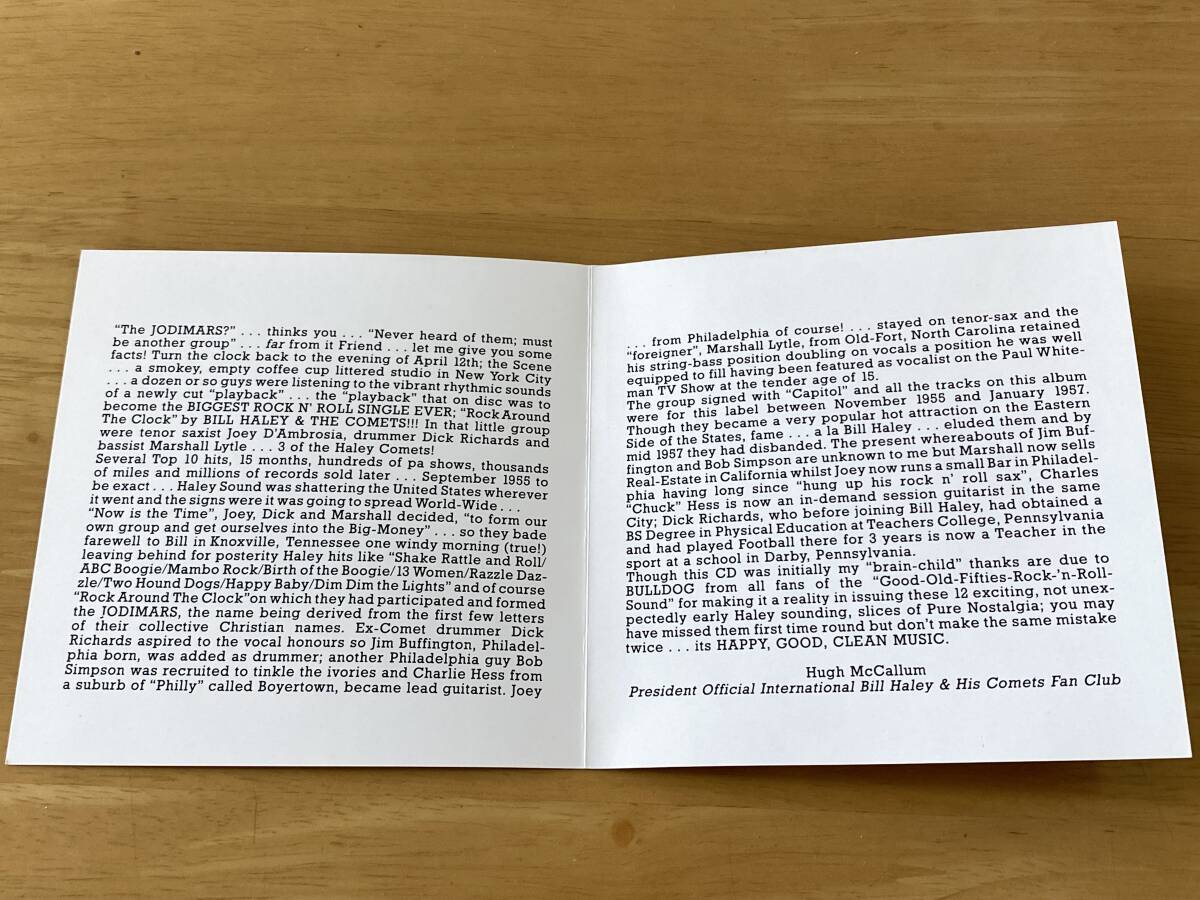 "The JODIMARS?" . . . thinks you . . . "Never heard of them; must
be another group" . . . far from it Friend . . . let me give you some
facts! Turn the clock back to the evening of April 12th; the Scene
. . . a smokey, empty coffee cup littered studio in New York City
. . . a dozen or so guys were listening to the vibrant rhythmic sounds
of a newly cut "playback" . . . the "playback" that on disc was to
become the BIGGEST ROCK N' ROLL SINGLE EVER; "Rock Around
The Clock" by BILL HALEY & THE COMETS!!! In that little group
were tenor saxist Joey D'Ambrosia, drummer Dick Richards and
bassist Marshall Lytle . . . 3 of the Haley Comets!
Several Top 10 hits, 15 months, hundreds of pa shows, thousands
of miles and millions of records sold later . . . September 1955 to
be exact . . . Haley Sound was shattering the United States wherever
it went and the signs were it was going to spread World-Wide . . .
"Now is the Time", Joey, Dick and Marshall decided, "to form our
own group and get ourselves into the Big-Money" . . . so they bade
farewell to Bill in Knoxville, Tennessee one windy morning (true!)
leaving behind for posterity Haley hits like "Shake Rattle and Roll/
ABC Boogie/Mambo Rock/Birth of the Boogie/13 Women/Razzle Daz-
zle/Two Hound Dogs/Happy Baby/Dim Dim the Lights" and of course
"Rock Around The Clock" on which they had participated and formed
the JODIMARS, the name being derived from the first few letters
of their collective Christian names. Ex-Comet drummer Dick
Richards aspired to the vocal honours so Jim Buffington, Philadel-
phia born, was added as drummer; another Philadelphia guy Bob
Simpson was recruited to tinkle the ivories and Charlie Hess from
a suburb of "Philly" called Boyertown, became lead guitarist. Joey
. . . from Philadelphia of course! . . . stayed on tenor-sax and the
"foreigner", Marshall Lytle, from Old-Fort, North Carolina retained
his string-bass position doubling on vocals a position he was well
equipped to fill having been featured as vocalist on the Paul White-
man TV Show at the tender age of 15.
The group signed with "Capitol" and all the tracks on this album
were for this label between November 1955 and January 1957.
Though they became a very popular hot attraction on the Eastern
Side of the States, fame . . . a la Bill Haley . . . eluded them and by
mid 1957 they had disbanded. The present whereabouts of Jim Buf-
fington and Bob Simpson are unknown to me but Marshall now sells
Real-Estate in California whilst Joey now runs a small Bar in Philadel-
phia having long since "hung up his rock n' roll sax", Charles
"Chuck" Hess is now an in-demand session guitarist in the same
City; Dick Richards, who before joining Bill Haley, had obtained a
BS Degree in Physical Education at Teachers College, Pennsylvania
and had played Football there for 3 years is now a Teacher in the
sport at a school in Darby, Pennsylvania.
Though this CD was initially my "brain-child" thanks are due to
BULLDOG from all fans of the "Good-Old-Fifties-Rock-'n-Roll-
Sound" for making it a reality in issuing these 12 exciting, not unex-
pectedly early Haley sounding, slices of Pure Nostalgia; you may
have missed them first time round but don't make the same mistake
twice . . . its HAPPY, GOOD, CLEAN MUSIC.
Hugh McCallum
President Official International Bill Haley & His Comets Fan Club